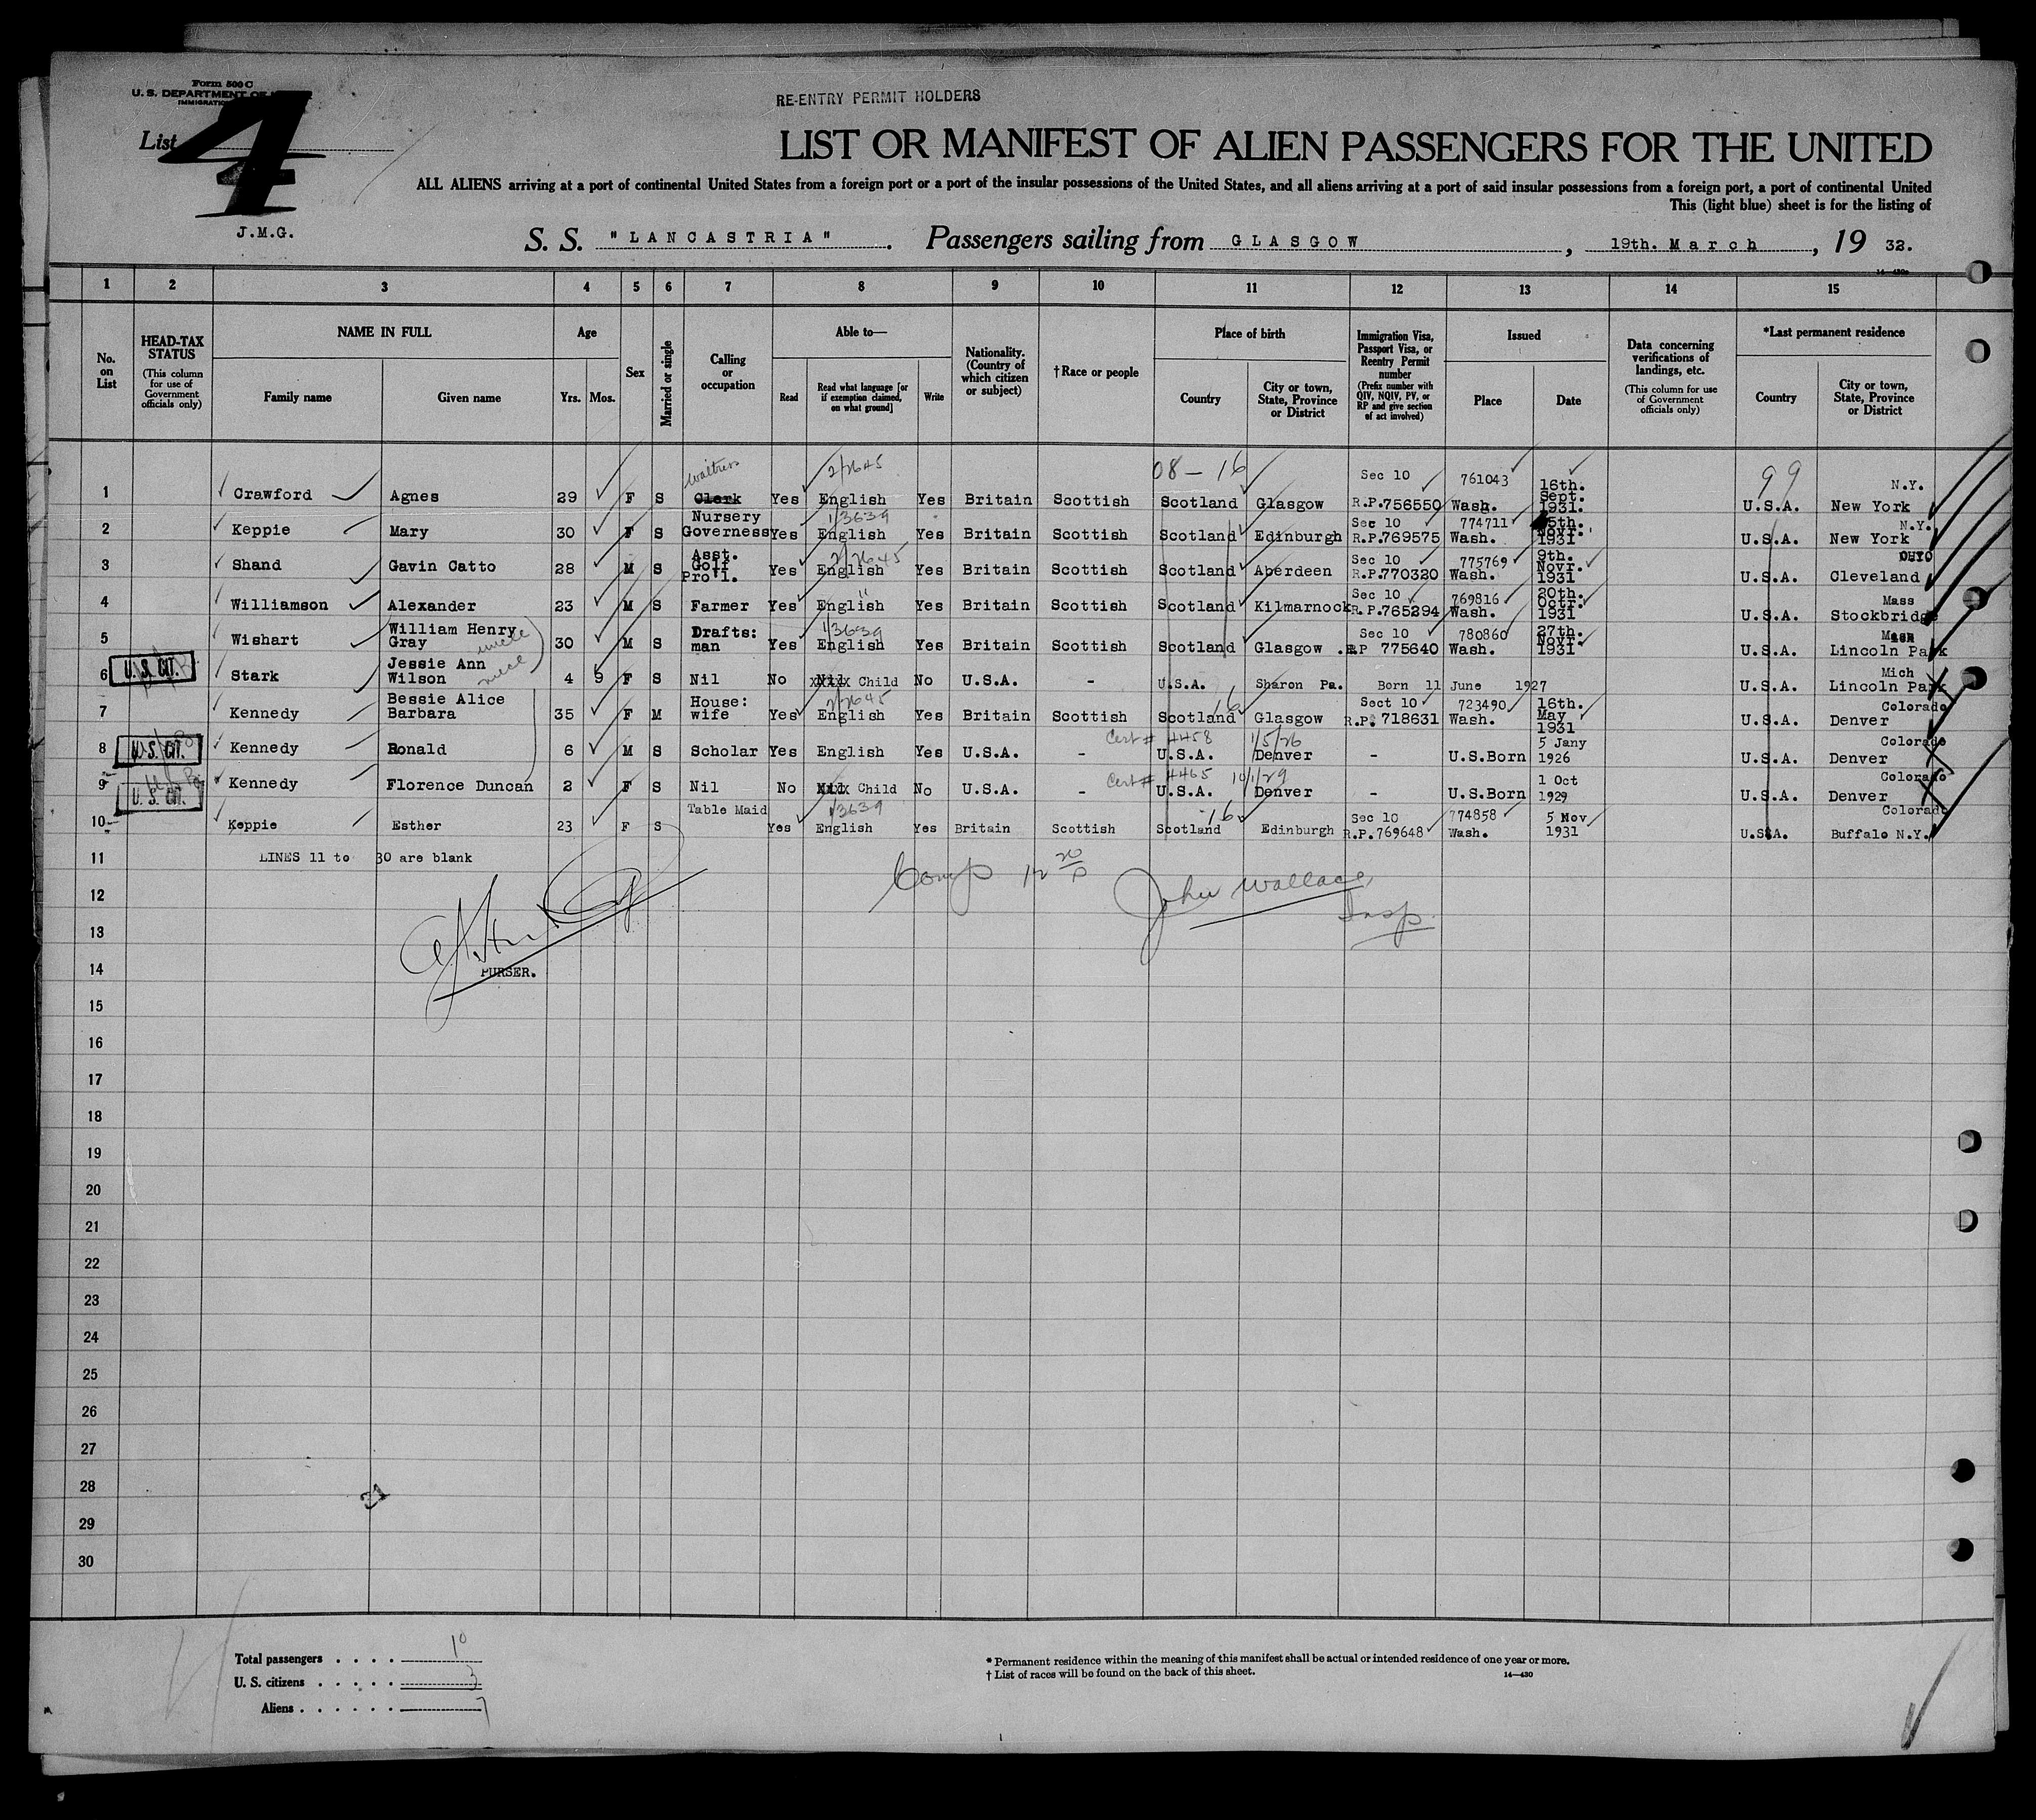 Form 500 C
U. S. DEPARTMENT OF
IMMIGRATION
RE-ENTRY PERMIT HOLDERS
List 4
LIST OR MANIFEST OF ALIEN PASSENGERS FOR THE UNITED
ALL ALIENS arriving at a port of continental United States from a foreign port or a port of the insular possessions of the United States, and all aliens arriving at a port of said insular possessions from a foreign port, a port of continental United
This (light blue) sheet is for the listing of
J.M.G.
S. S. "LANCASTRIA". Passengers sailing from GLASGOW, 19th. March, 19 32.
1 2 3 4 5 6 7 8 9 10 11 12 13 14 15
No. on List
HEAD-TAX STATUS (This column for use of Government officials only)
NAME IN FULL
Family name Given name
Age
Yrs. Mos.
Sex
Married or single
Calling or occupation
Able to—
Read Read what language [or if exemption claimed, on what ground] Write
Nationality. (Country of which citizen or subject)
†Race or people
Place of birth
Country City or town, State, Province or District
Immigration Visa, Passport Visa, or Reentry Permit number (Prefix number with QIV, NQIV, PV, or RP and give section of act involved)
Issued
Place Date
Data concerning verifications of landings, etc. (This column for use of Government officials only)
*Last permanent residence
Country City or town, State, Province or District
08-16 99
1 Crawford Agnes 29 F S waitress Clerk Yes English 2/2645 Yes Britain Scottish Scotland Glasgow Sec 10 R.P.756550 761043 Wash. 16th. Sept. 1931. U.S.A. New York N.Y.
2 Keppie Mary 30 F S Nursery Governess Yes English 1/3639 Yes Britain Scottish Scotland Edinburgh Sec 10 R.P.769575 774711 Wash. 5th. Novr. 1931 U.S.A. New York N.Y.
3 Shand Gavin Catto 28 M S Asst. Golf Pro'l. Yes English 2/2645 Yes Britain Scottish Scotland Aberdeen Sec 10 R.P.770320 775769 Wash. 9th. Novr. 1931 U.S.A. Cleveland OHIO
4 Williamson Alexander 23 M S Farmer Yes English " Yes Britain Scottish Scotland Kilmarnock Sec 10 R.P.765294 769816 Wash. 20th. Octr. 1931 U.S.A. Stockbridge Mass
5 Wishart William Henry Gray uncle 30 M S Drafts: man Yes English 1/3639 Yes Britain Scottish Scotland Glasgow Sec 10 RP 775640 780860 Wash. 27th. Novr. 1931 U.S.A. Lincoln Park
6 U.S. CIT. Stark Jessie Ann Wilson niece 4 9 F S Nil No Child No U.S.A. - U.S.A. Sharon Pa. Born 11 June 1927 U.S.A. Lincoln Park Mich
7 Kennedy Bessie Alice Barbara 35 F M House: wife Yes English 2/2645 Yes Britain Scottish Scotland 16 Glasgow Sect 10 R.P. 718631 723490 Wash. 16th. May 1931 U.S.A. Denver Colorado
8 U.S. CIT. Kennedy Ronald 6 M S Scholar Yes English Yes U.S.A. - Cert # 4458 1/5/26 U.S.A. Denver - U.S.Born 5 Jany 1926 U.S.A. Denver Colorado
9 U.S. CIT. Kennedy Florence Duncan 2 F S Nil No Child No U.S.A. - Cert # 4465 10/1/29 U.S.A. Denver - U.S.Born 1 Oct 1929 U.S.A. Denver Colorado
10 Keppie Esther 23 F S Table Maid Yes English 1/3639 Yes Britain Scottish Scotland 16 Edinburgh Sec 10 R.P.769648 774858 Wash. 5 Nov 1931 U.S.A. Buffalo N.Y. Colorado
11 LINES 11 to 30 are blank
12 John Wallace
13 Insp.
14 PURSER.
15
16
17
18
19
20
21
22
23
24
25
26
27
28
29
30
Total passengers . . . . 10
U. S. citizens . . . . . 3
Aliens . . . . . . 7
* Permanent residence within the meaning of this manifest shall be actual or intended residence of one year or more.
† List of races will be found on the back of this sheet. 14—430